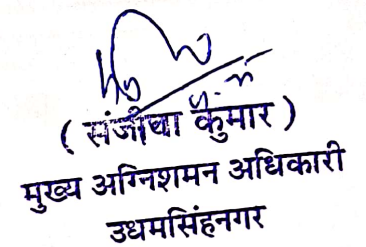 ( संजीवा कुमार )
मुख्य अग्निशमन अधिकारी
उधमसिंहनगर